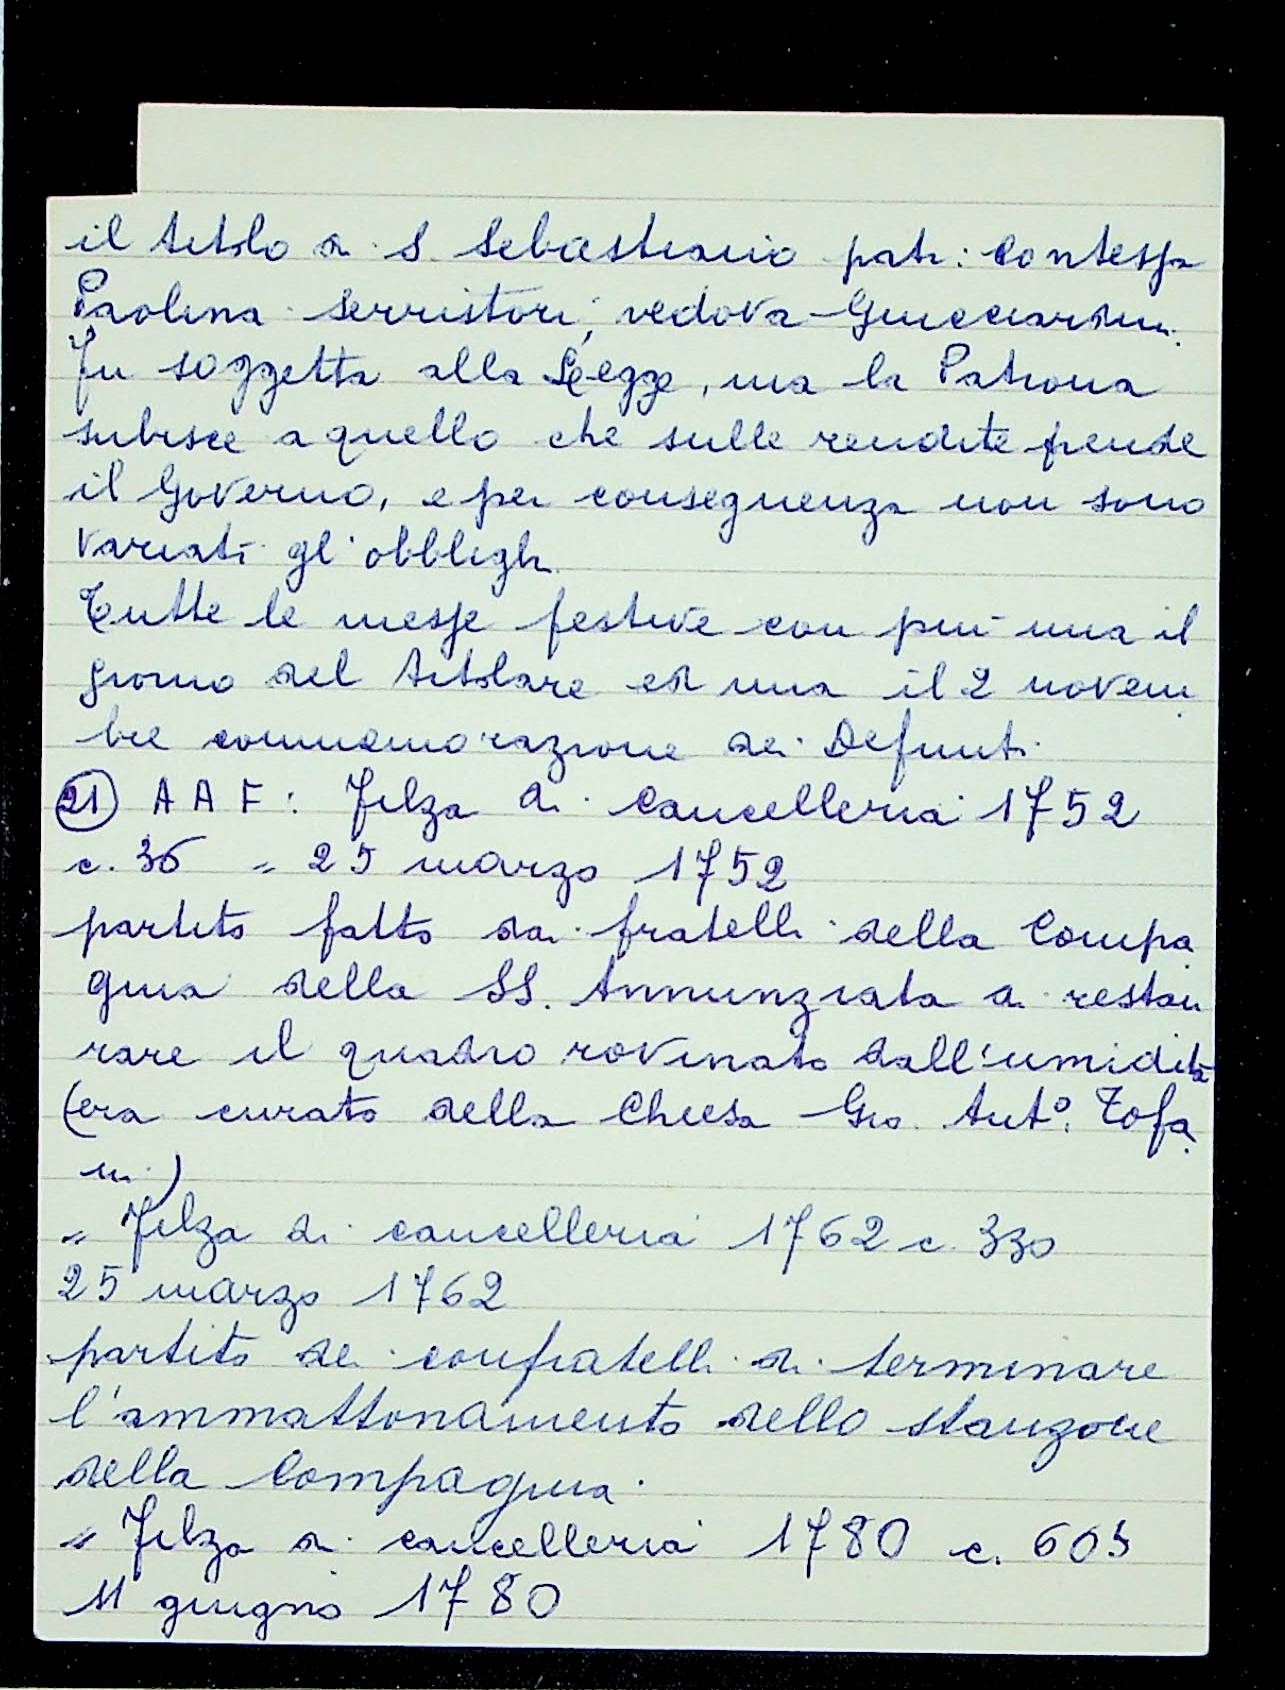 il titolo di S. Sebastiano patr: Contessa
Paolina Serristori, vedova Guicciardini.
Fu soggetta alla Legge, ma la Patrona
subisce a quello che sulle rendite prende
il Governo, e per conseguenza non sono
variati gl'obblighi
Tutte le messe festive con più una il
giorno del titolare ed una il 2 novem
bre commemorazione dei Defunti.
(21) A A F: Filza di Cancelleria 1752
c. 36 = 25 marzo 1752
partito fatto dai fratelli della Compa
gnia della SS. Annunziata di restau
rare il quadro rovinato dall'umidità
(era curato della Chiesa Gio. Ant°. Tofa
ni)
= Filza di cancelleria 1762 c. 330
25 marzo 1762
partito dei confratelli di terminare
l'ammattonamento dello stanzone
della Compagnia.
= Filza di cancelleria 1780 c. 605
11 giugno 1780